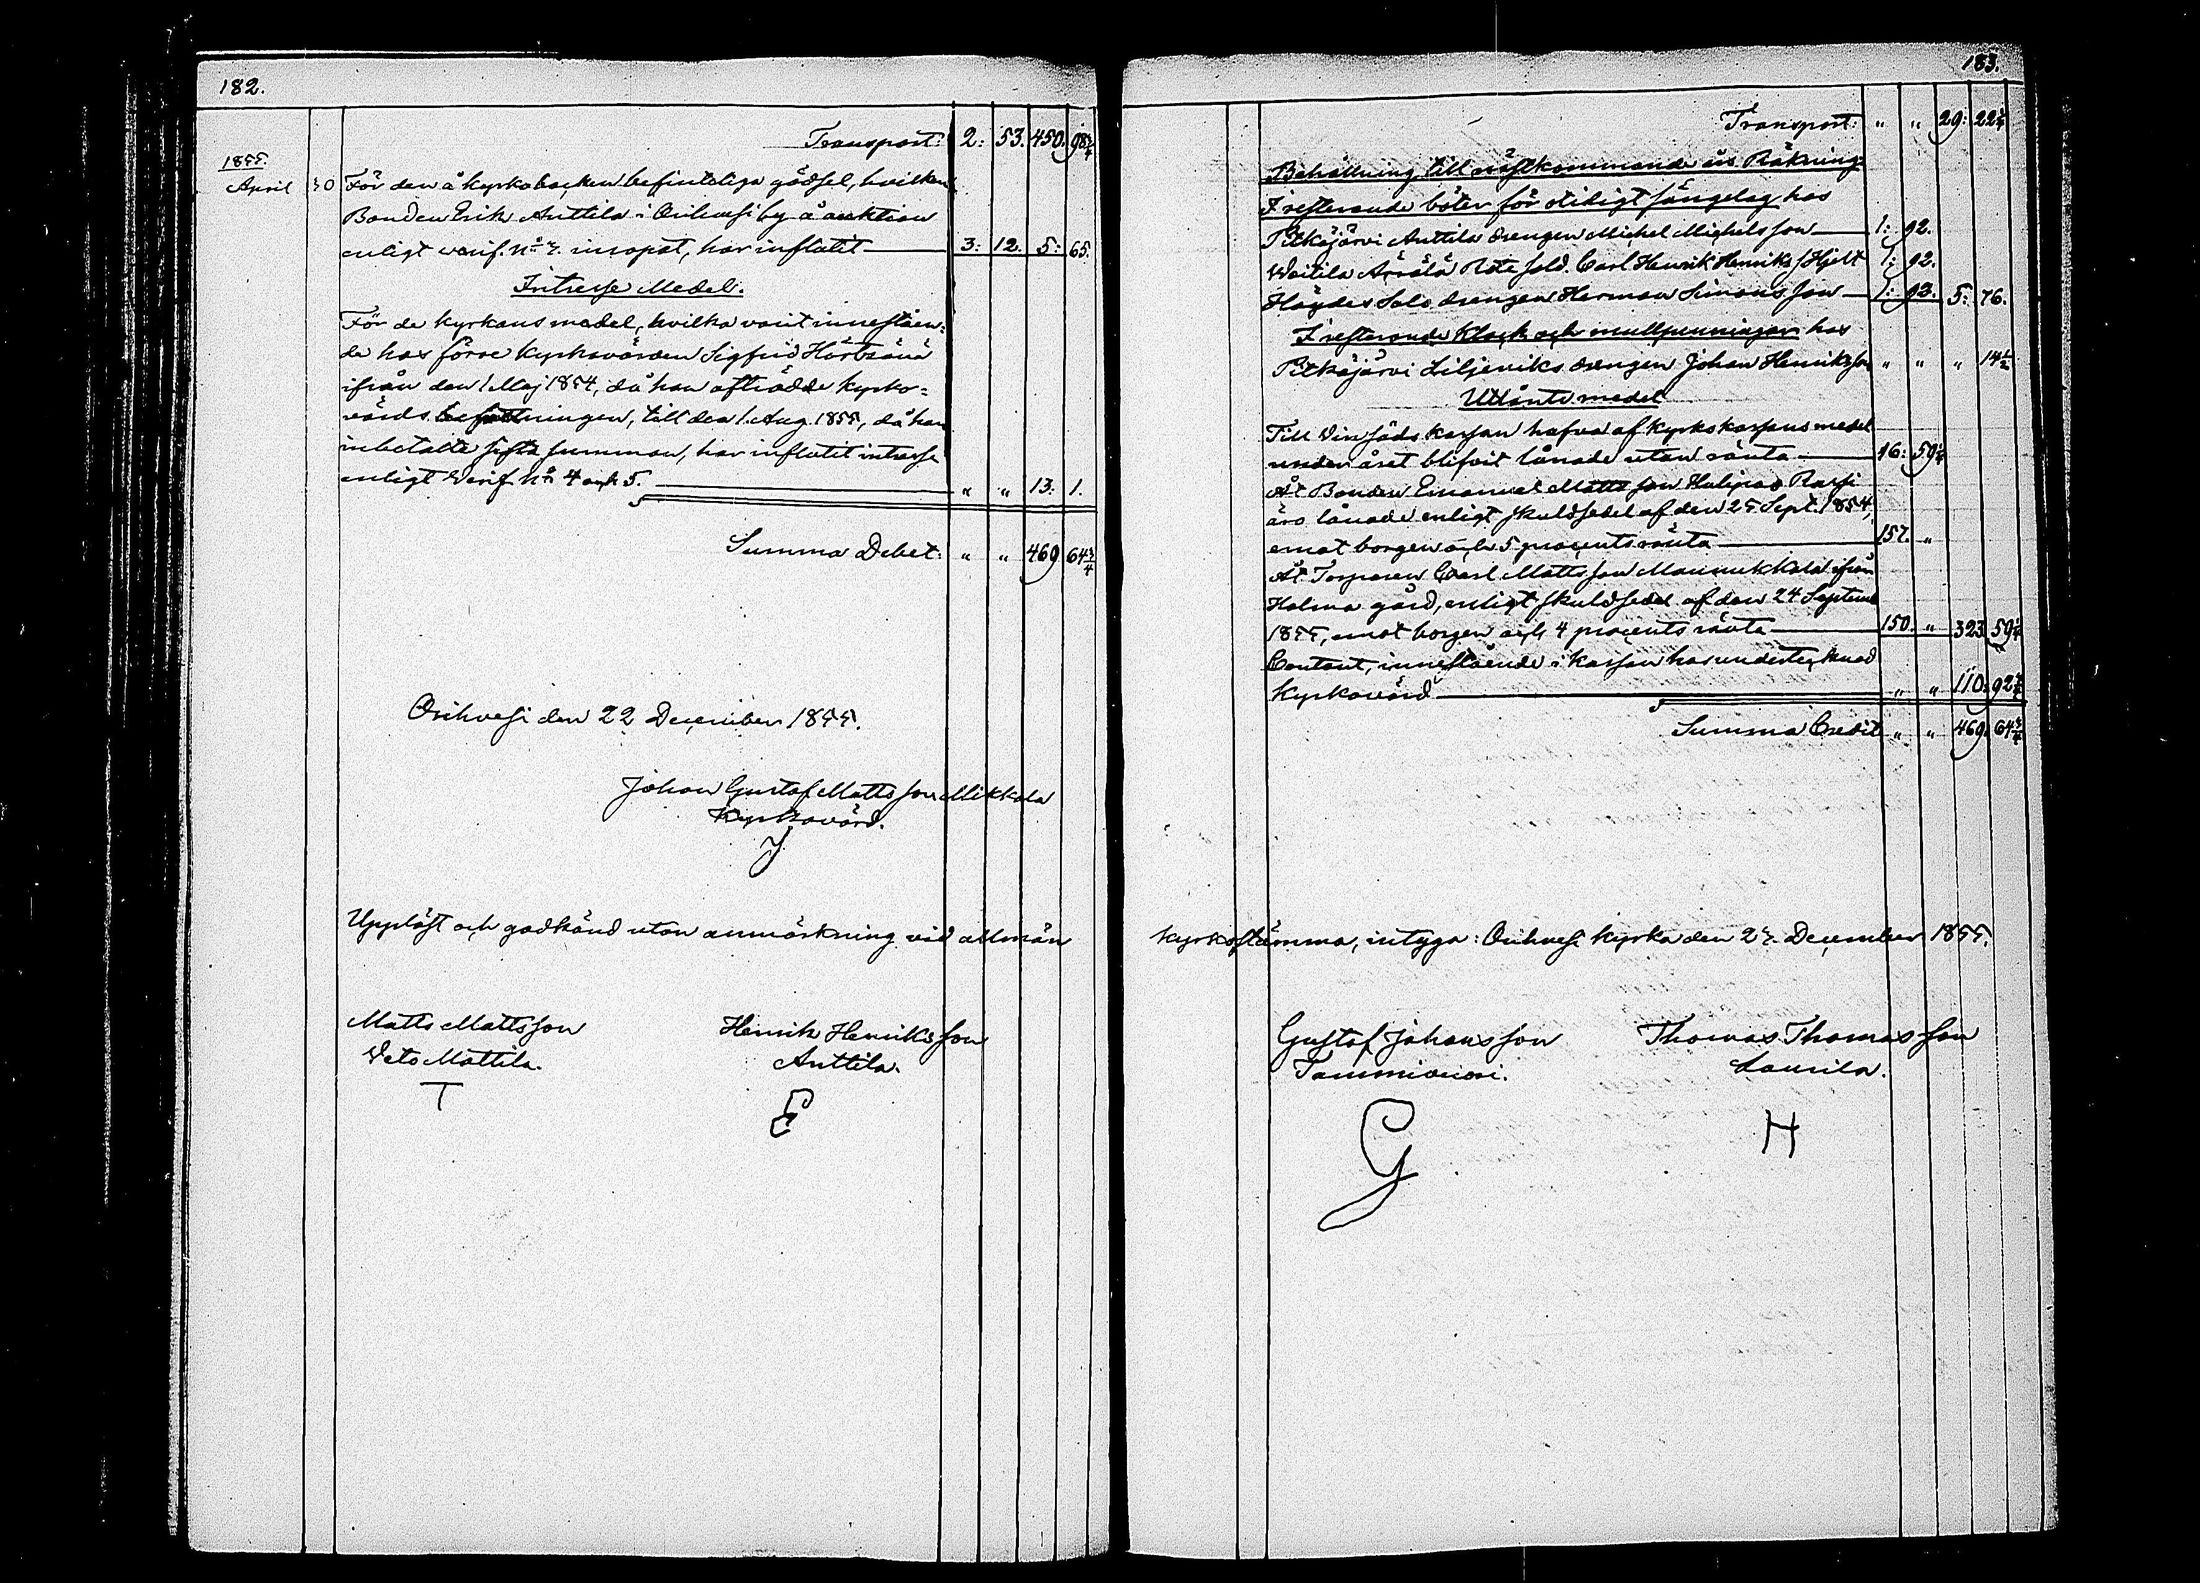 182.
Transport: 2: 53. 450. 98 3/4
1855.
April 30 För den å kyrkobacken befinteliga gödsel, hvilken
Bonden Erik Anttila i Orihvesi by å auktion
enligt verif. No 3. inropat, har influtit 3: 12. 5: 65.
Intresse Medel.
För de kyrkans medel, hvilka varit inneståen-
de hos förre kyrkovärden Sigfrid
ifrån den 1 Maj 1854, då han afträdde kyrko-
värds befattningen, till den 1 Aug. 1855, då han
inbetalte sista summan, har influtit intresse
enligt Verif. No 4 och 5. " " 13: 1.
Summa Debet: " " 469 64 3/4
Orihvesi den 22 December 1855.
Johan Gustaf Mattsson Mikkola
Kyrkovärd.
Uppläst och godkänd utan anmärkning vid allmän
Matts Mattsson
Veto Mattila.
T
Henrik Henriksson
Anttila.
E
183.
Transport: " " 29: 22 1/4
Behållning till nästkommande års Räkning
I resterande böter för otidigt sängelag hos
Pitkäjärvi Anttila drengen Michel Michelsson 1: 92.
Voitila Arvälä Rote sold. Carl Henrik Henriks s Hjelt 1: 92.
Salo drengen Herman Simonsson 1: 92. 5: 76.
I resterande Klock och mullpenningar hos
Pitkäjärvi Liljeviks drengen Johan Henriksson " " " 14 1/2
Utlånte medel
Till kassan hafva af kyrkokassans medel
under året blifvit lånade utan ränta 16: 59 1/4
Åt Bonden Emanuel Mattsson Rassi
äro lånade enligt skuldsedel af den 25 Sept. 1854,
emot borgen och 5 procents ränta 157. "
Åt Torparen Carl Mattsson ifrån
Holma gård, enligt skuldsedel af den 24 Septemb
1855, emot borgen och 4 procents ränta 150. " 323 59 1/4
Contant, innestående i kassan hos undertecknad
Kyrkovärd " " 110. 92 3/4
Summa Credit " " 469. 64 3/4
Kyrkostämma, intyga: Orihvesi kyrka den 23. December 1855.
Gustaf Johansson
Tammivuori.
G
Thomas Thomasson
Laurila.
H